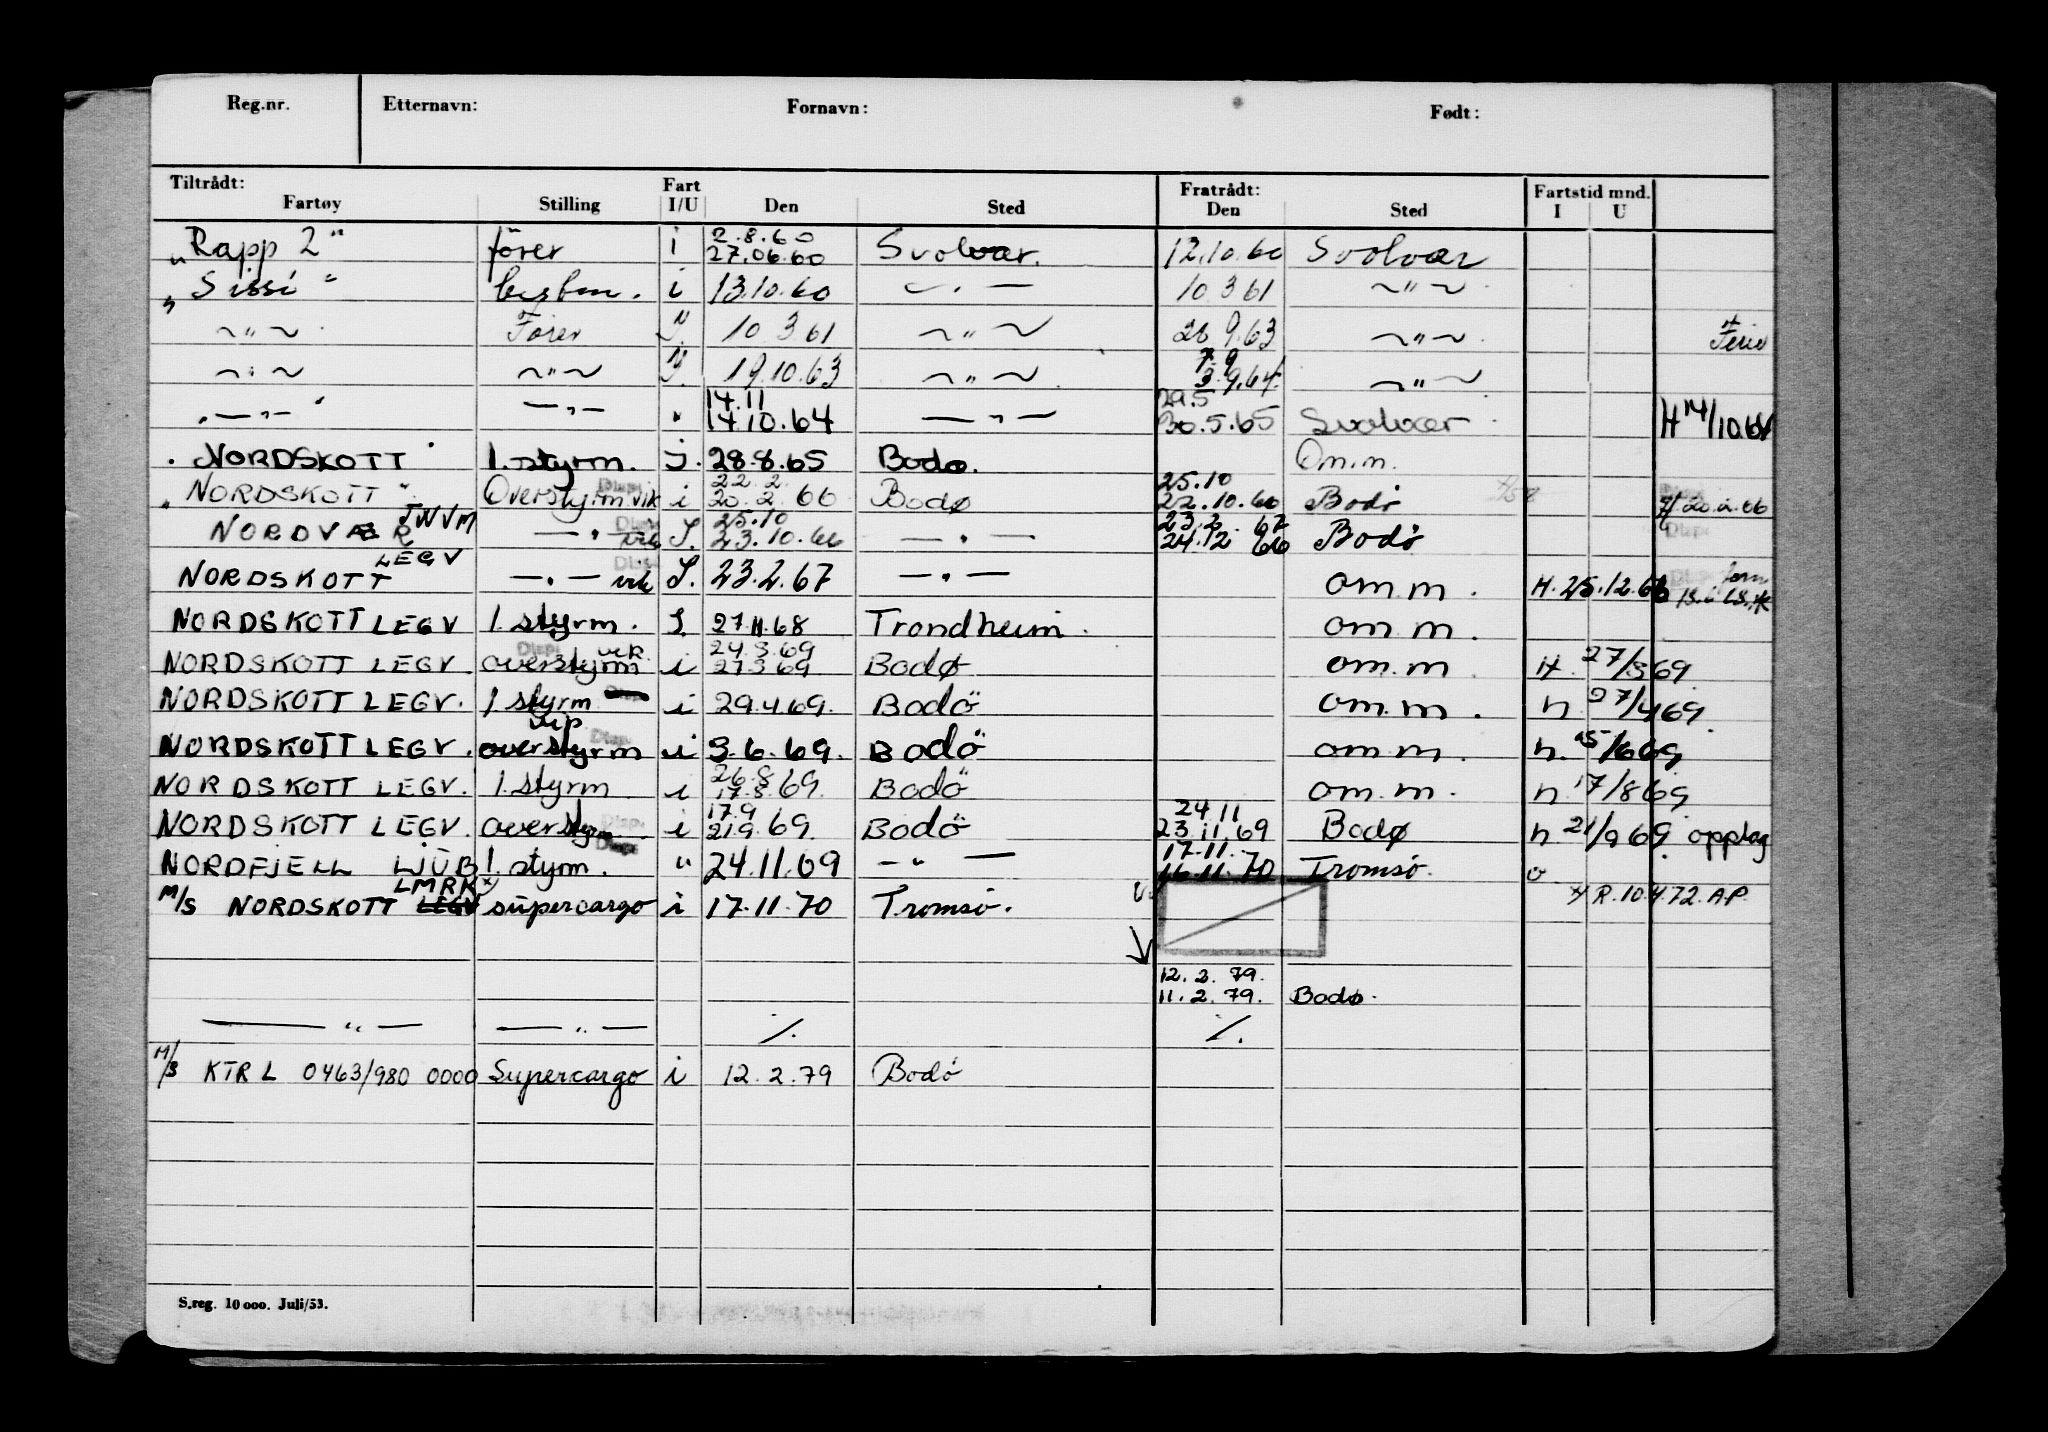 Reg.nr. Etternavn: Fornavn: Født:
Tiltrådt: Fart Fratrådt: Fartstid mnd.
Fartøy Stilling I/U Den Sted Den Sted I U
2.8.60
"Rapp 2" fører i 27.06.60 Svolvær. 12.10.60 Svolvær
"Sissi" i 13.10.60 — " — 10 3 61 — " —
— " — Fører I. 10 3 61 — " — 28 9.63 — " — Ferie
7.9
— " — — " — I. 19.10.63 — " — 3.9.64. — " —
14.11 29.5
" — " — " — " — " 14.10.64 — " — 30.5.65 Svolvær H 14/10.64
"NORDSKOTT" 1. styrm. I. 28.8.65 Bodø. Om.m.
22.2. 25.10
"NORDSKOTT" Overstyrm vik i 20.2.66 Bodø 22.10.66 Bodø H 20.2.66
JWVM 25.10 23.2.67
NORDVÆR — " — vik I. 23.10.66 — " — 24.12 66 Bodø
LEGV
NORDSKOTT — " — vik I. 23.2.67 — " — om m. H. 25.12.66
NORDSKOTT LEGV 1. styrm. I. 27.11.68 Trondheim. om m.
vik 24.3.69
NORDSKOTT LEGV. overstyrm i 27.3 69 Bodø om.m H. 27/3 69
NORDSKOTT LEGV. 1. styrm i 29.4.69. Bodö om m. h 27/4 69
NORDSKOTT LEGV. overstyrm i 3.6.69. Bodö om m. h. 15/6 69
26.8
NORDSKOTT LEGV. 1. styrm i 17.8.69. Bodö om m. h 17/8 69
17.9 24 11
NORDSKOTT LEGV. overstyrm i 21.9.69. Bodö 23.11.69 Bodø h 21/9 69. opplag
17.11.
NORDFJELL LJUB 1. styrm. " 24.11.69 — " — 16.11.70 Tromsø.
LMRK x
M/S NORDSKOTT LEGV supercargo i 17.11.70 Tromsø. x R.10.4.72. A.P.
12.2.79.
11.2.79. Bodø.
— " — — " — %. %.
M/S KTRL 0463/980 0000 Supercargo i 12.2.79 Bodö
S.reg. 10 000. Juli/53.